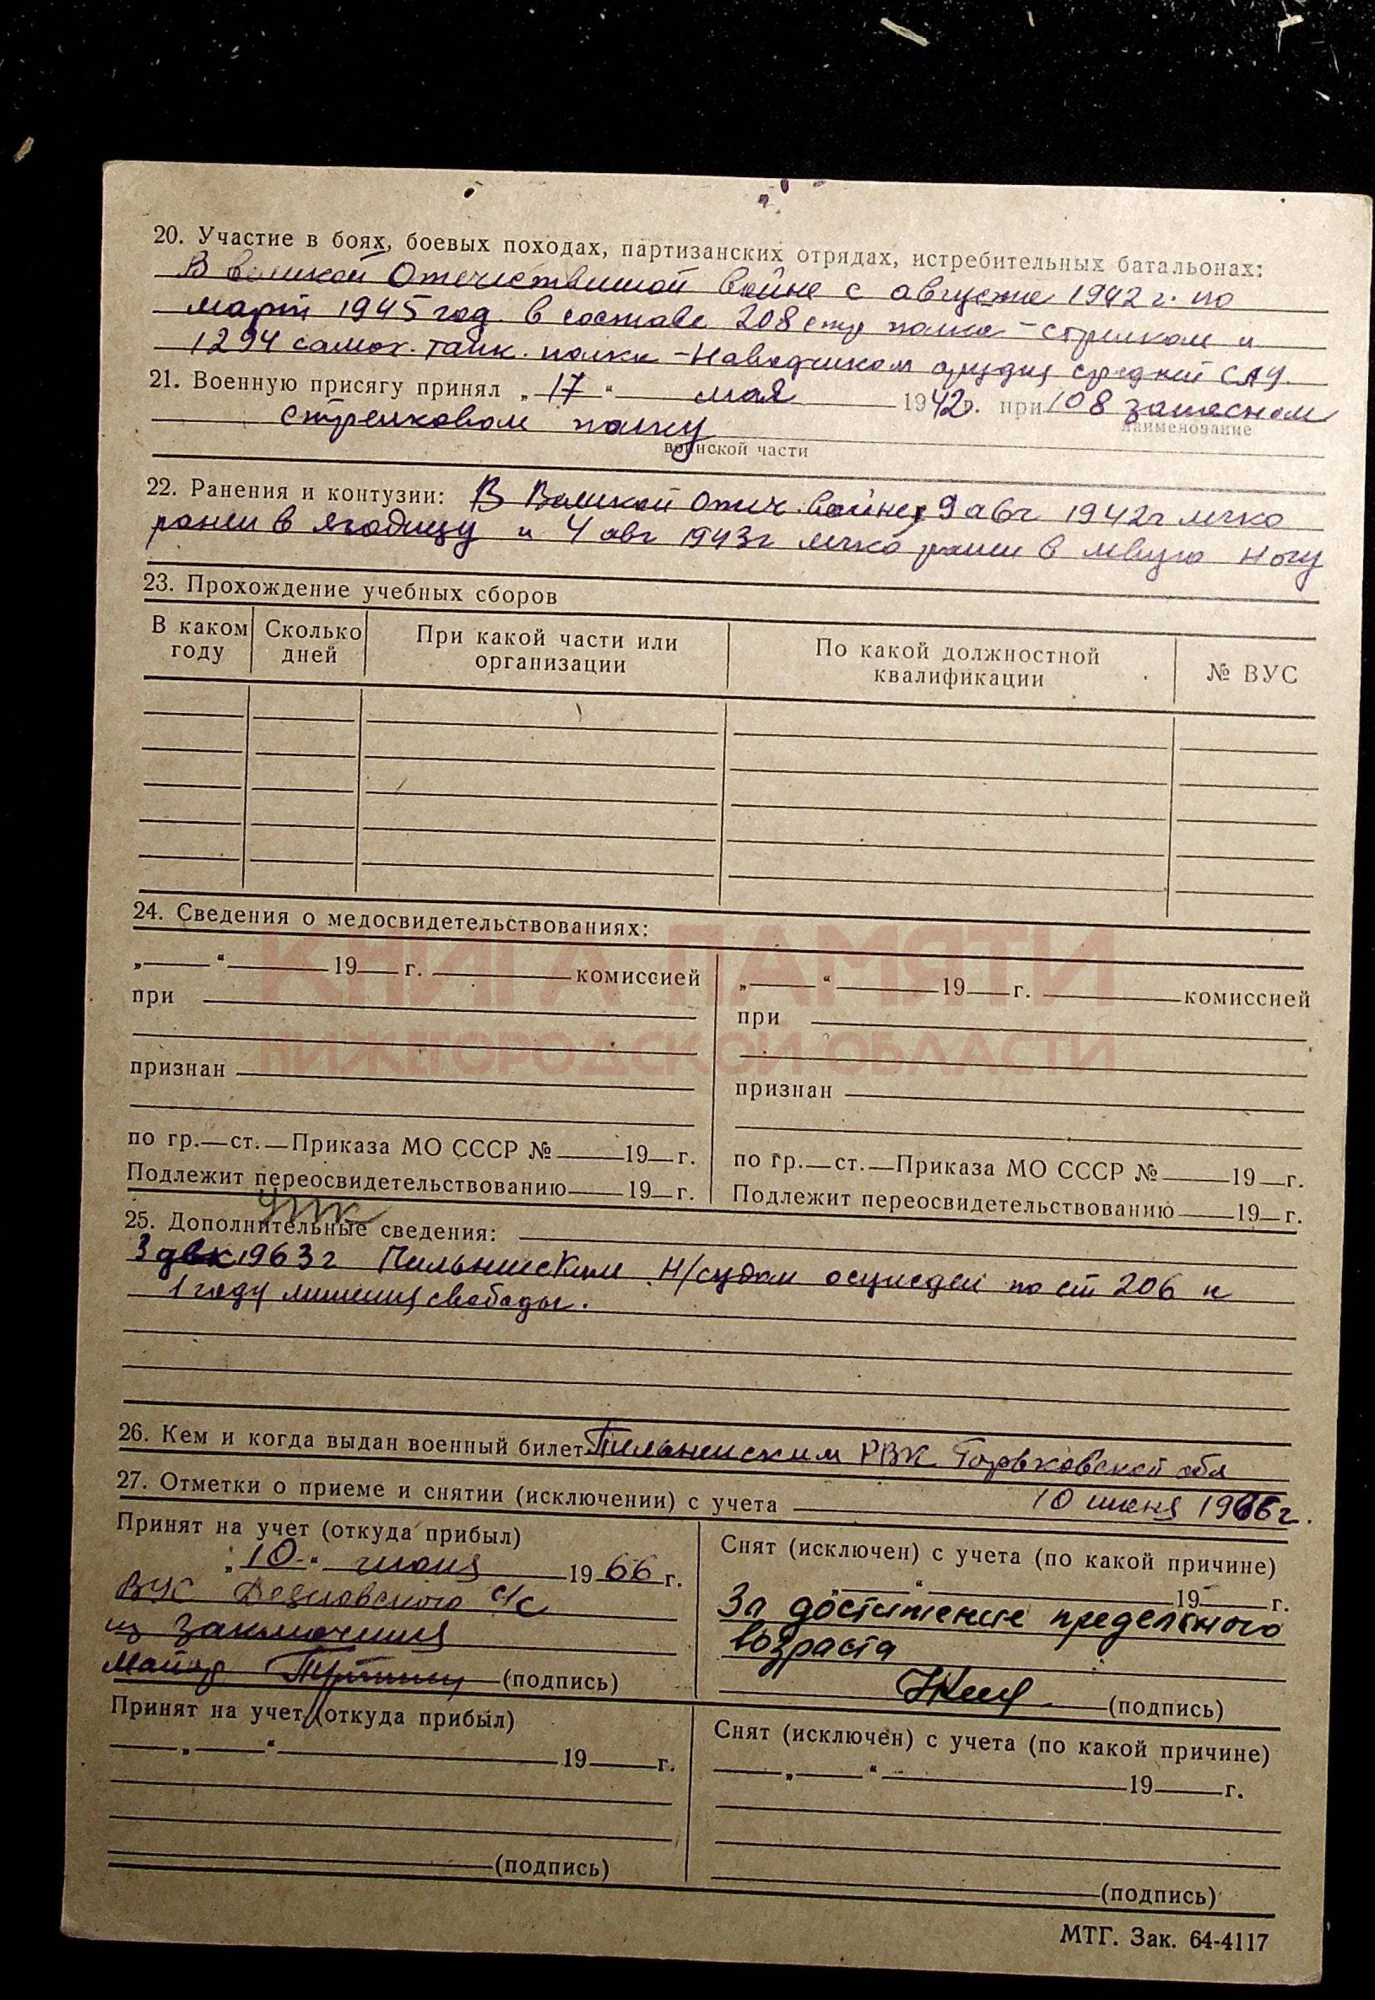 20. Участие в боях, боевых походах, партизанских отрядах, истребительных батальонах:
В Великой Отечественной войне с августа 1942 г. по
март 1945 год в составе 208 стр полка - стрелком и
1294 самох. танк. полка - Наводчиком орудия средней САУ.
21. Военную присягу принял „17“ мая 1942 г. при 108 запасном
наименование
стрелковом полку
воинской части
22. Ранения и контузии: В Великой Отеч. войне, 9 авг 1942 г легко
ранен в ягодицу и 4 авг 1943 г легко ранен в левую ногу
23. Прохождение учебных сборов
В каком году
Сколько дней
При какой части или организации
По какой должностной квалификации
№ ВУС
КНИГА ПАМЯТИ
НИЖЕГОРОДСКОЙ ОБЛАСТИ
24. Сведения о медосвидетельствованиях:
„ “ 19 г. комиссией
при
признан
по гр. ст. Приказа МО СССР № 19 г.
Подлежит переосвидетельствованию 19 г.
„ “ 19 г. комиссией
при
признан
по гр. ст. Приказа МО СССР № 19 г.
Подлежит переосвидетельствованию 19 г.
25. Дополнительные сведения:
3 дек 1963 г Пильнинским Н/судом осужден по ст 206 к
1 году лишения свободы.
26. Кем и когда выдан военный билет Пильнинским РВК Горьковской обл
27. Отметки о приеме и снятии (исключении) с учета 10 июня 1966 г.
Принят на учет (откуда прибыл)
„10“ июня 1966 г.
ВУС с/с
из заключения
Майор (подпись)
Снят (исключен) с учета (по какой причине)
„ “ 19 г.
За достижение предельного
возраста
(подпись)
Принят на учет (откуда прибыл)
„ “ 19 г.
(подпись)
Снят (исключен) с учета (по какой причине)
„ “ 19 г.
(подпись)
МТГ. Зак. 64-4117